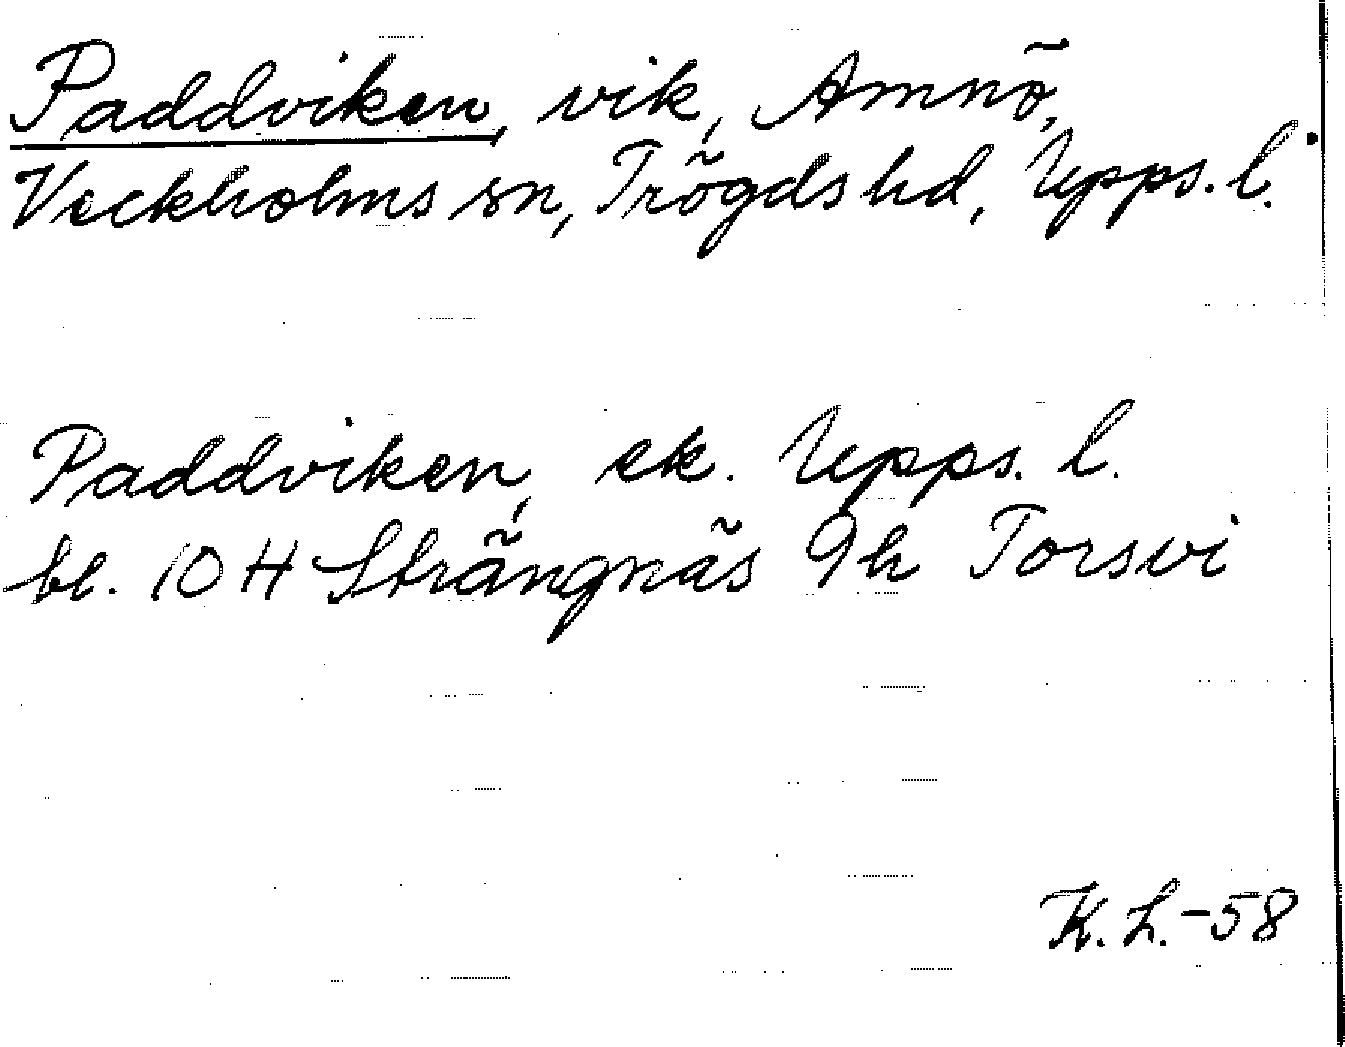 Paddviken, vik, Amnö,
Veckholms sn, Trögds hd, Upps. l.
Paddviken, ek. Upps. l.
bl. 10 H Strängnäs 9h Torsvi
K. L. -58